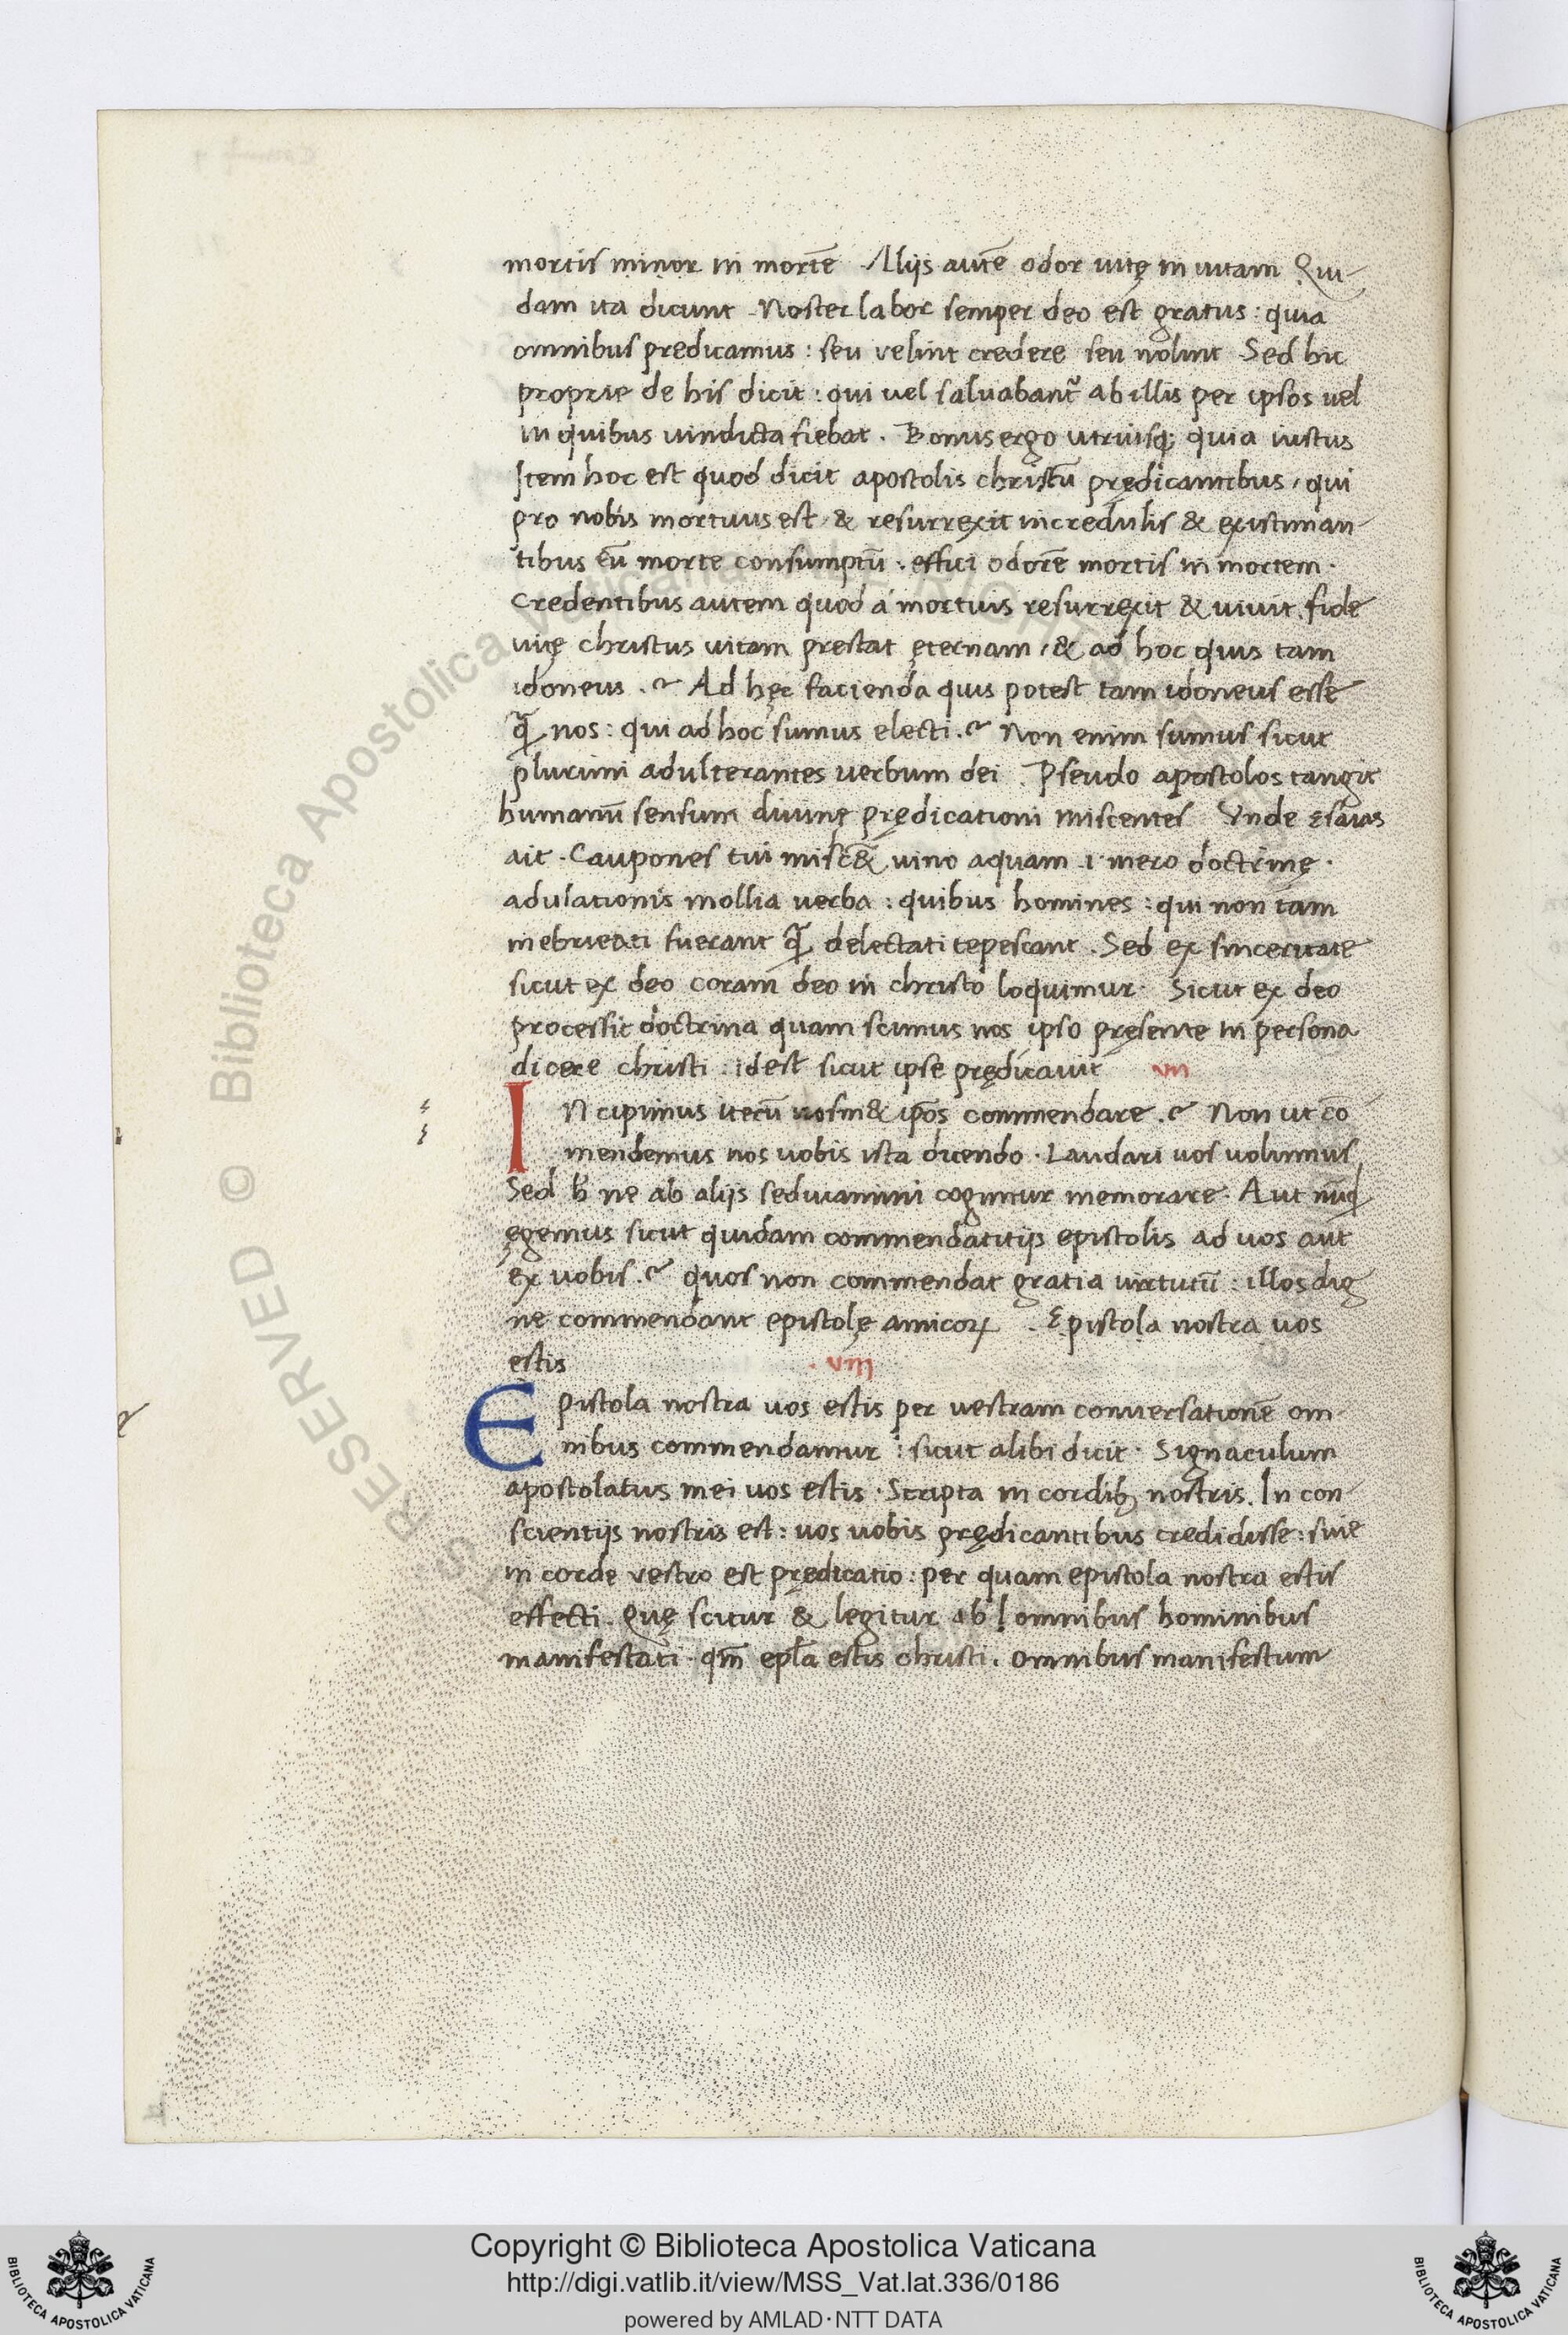 mortis minor in mortē Alijs autē odor uitę in uitam Qui-
dam ita dicunt Noster labor semper deo est gratus: quia
omnibus predicamus: seu velint credere seu nolint Sed hic
proprie de his dicit: qui uel saluabant᷑ ab illis per ipsos uel
in quibus uindicta fiebat. Bonus ergo utriusq; quia iustus
Item hoc est quod dicit apostolis christū prędicantibus, qui
pro nobis mortuus est & resurrexit incredulis & existiman-
tibus eū morte consumptū. effici odorē mortis in mortem.
Credentibus autem quod á mortuis resurrexit & uiuit, fide
uitę christus uitam prestat ęternam, & ad hoc quis tam
idoneus.? Ad hęc facienda quis potest tam idoneus esse
qᷓ nos: qui ad hoc sumus electi.? Non enim sumus sicut
plurimi adulterantes uerbum dei. Pseudo apostolos tangit
humanū sensum diuinę prędicationi miscentes Vnde Esaias
ait. Caupones tui misc&̄ uino aquam .i. mero doctrinę.
adulationis mollia uerba: quibus homines: qui non tam
inebrieati fuerant qᷓ delectati tepescant. Sed ex sinceritate
sicut ex deo coram deo in christo loquimur. Sicut ex deo
processit doctrina quam scimus nos ipso pręsente in persona
dicere christi: idest sicut ipse prędicauit VII
INcipimus iterū nosm& ip̄os commendare.? Non ut cō
mendemus nos uobis ista dicendo. Laudari uos uolumus
Sed h' ne ab alijs seducamini cogimur memorare. Aut nūq
ęgemus sicut quidam commendatitijs epistolis ad uos aut
ex uobis.? quos non commendat gratia uirtutū: illos dig
ne commendant epistolę amicoꝝ. Epistola nostra uos
estis .VIII
Epistola nostra uos estis per uestram conuersationē om-
nibus commendamur: sicut alibi dicit. Signaculum
apostolatus mei uos estis. Scripta in cordibꝫ nostris. In con-
scientijs nostris est: uos uobis prędicantibus credidisse: siue
in corde vestro est prędicatio: per quam epistola nostra estis
effecti. Quę scitur & legitur ab omnibus hominibus
manifestati. qm̄ epl̄a estis christi. Omnibus manifestum
© Biblioteca Apostolica Vaticana
RESERVED
Copyright © Biblioteca Apostolica Vaticana
http://digi.vatlib.it/view/MSS_Vat.lat.336/0186
powered by AMLAD·NTT DATA
BIBLIOTECA APOSTOLICA VATICANA
BIBLIOTECA APOSTOLICA VATICANA